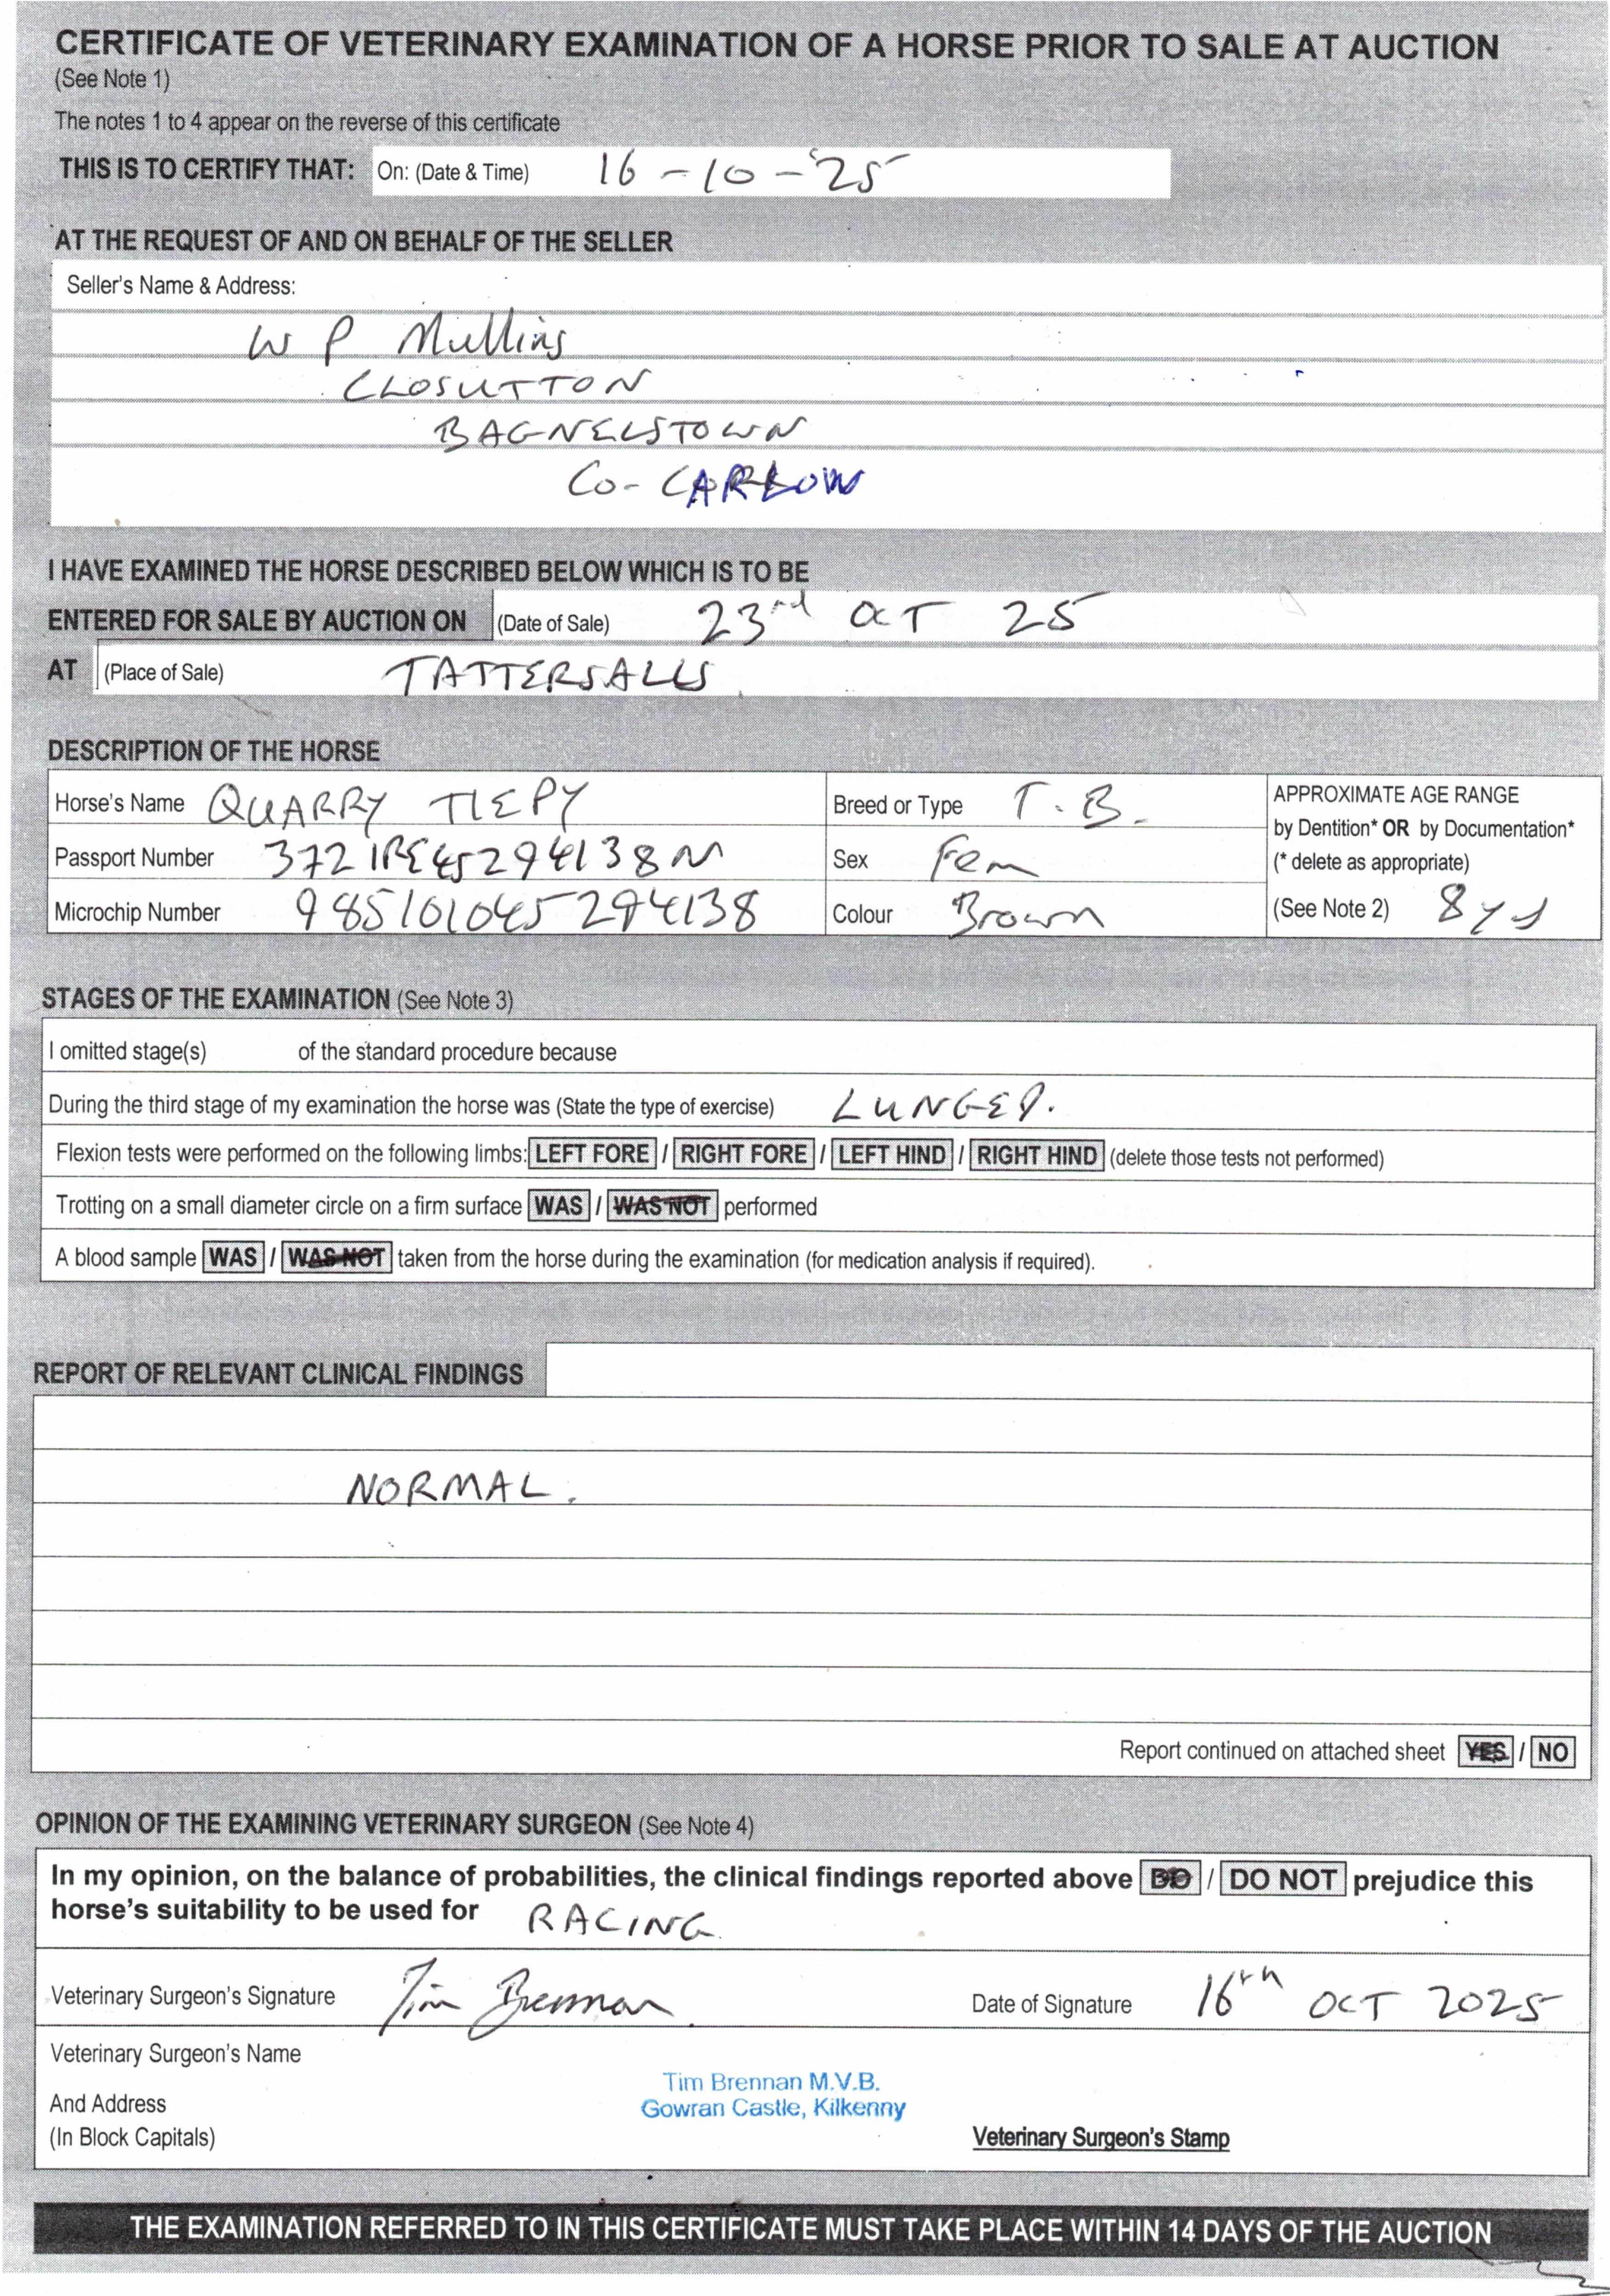 CERTIFICATE OF VETERINARY EXAMINATION OF A HORSE PRIOR TO SALE AT AUCTION
(See Note 1)
The notes 1 to 4 appear on the reverse of this certificate
THIS IS TO CERTIFY THAT: On: (Date & Time) 16-10-'25
AT THE REQUEST OF AND ON BEHALF OF THE SELLER
Seller's Name & Address:
W P Mullins
CLOSUTTON
BAGNELSTOWN
CO- CARLOW
I HAVE EXAMINED THE HORSE DESCRIBED BELOW WHICH IS TO BE
ENTERED FOR SALE BY AUCTION ON (Date of Sale) 23rd OCT 25
AT (Place of Sale) TATTERSALLS
DESCRIPTION OF THE HORSE
Horse's Name QUARRY TIEPY Breed or Type T.B.
Passport Number 372IRE45294138M Sex Fem
Microchip Number 985101045294138 Colour Brown
APPROXIMATE AGE RANGE
by Dentition* OR by Documentation*
(* delete as appropriate)
(See Note 2) 8 yrs
STAGES OF THE EXAMINATION (See Note 3)
I omitted stage(s) of the standard procedure because
During the third stage of my examination the horse was (State the type of exercise) LUNGED.
Flexion tests were performed on the following limbs: LEFT FORE / RIGHT FORE / LEFT HIND / RIGHT HIND (delete those tests not performed)
Trotting on a small diameter circle on a firm surface WAS / WAS NOT performed
A blood sample WAS / WAS NOT taken from the horse during the examination (for medication analysis if required).
REPORT OF RELEVANT CLINICAL FINDINGS
NORMAL.
Report continued on attached sheet YES / NO
OPINION OF THE EXAMINING VETERINARY SURGEON (See Note 4)
In my opinion, on the balance of probabilities, the clinical findings reported above DO / DO NOT prejudice this
horse's suitability to be used for RACING
Veterinary Surgeon's Signature Tim Brennan Date of Signature 16th OCT 2025
Veterinary Surgeon's Name
And Address
(In Block Capitals)
Tim Brennan M.V.B.
Gowran Castle, Kilkenny
Veterinary Surgeon's Stamp
THE EXAMINATION REFERRED TO IN THIS CERTIFICATE MUST TAKE PLACE WITHIN 14 DAYS OF THE AUCTION